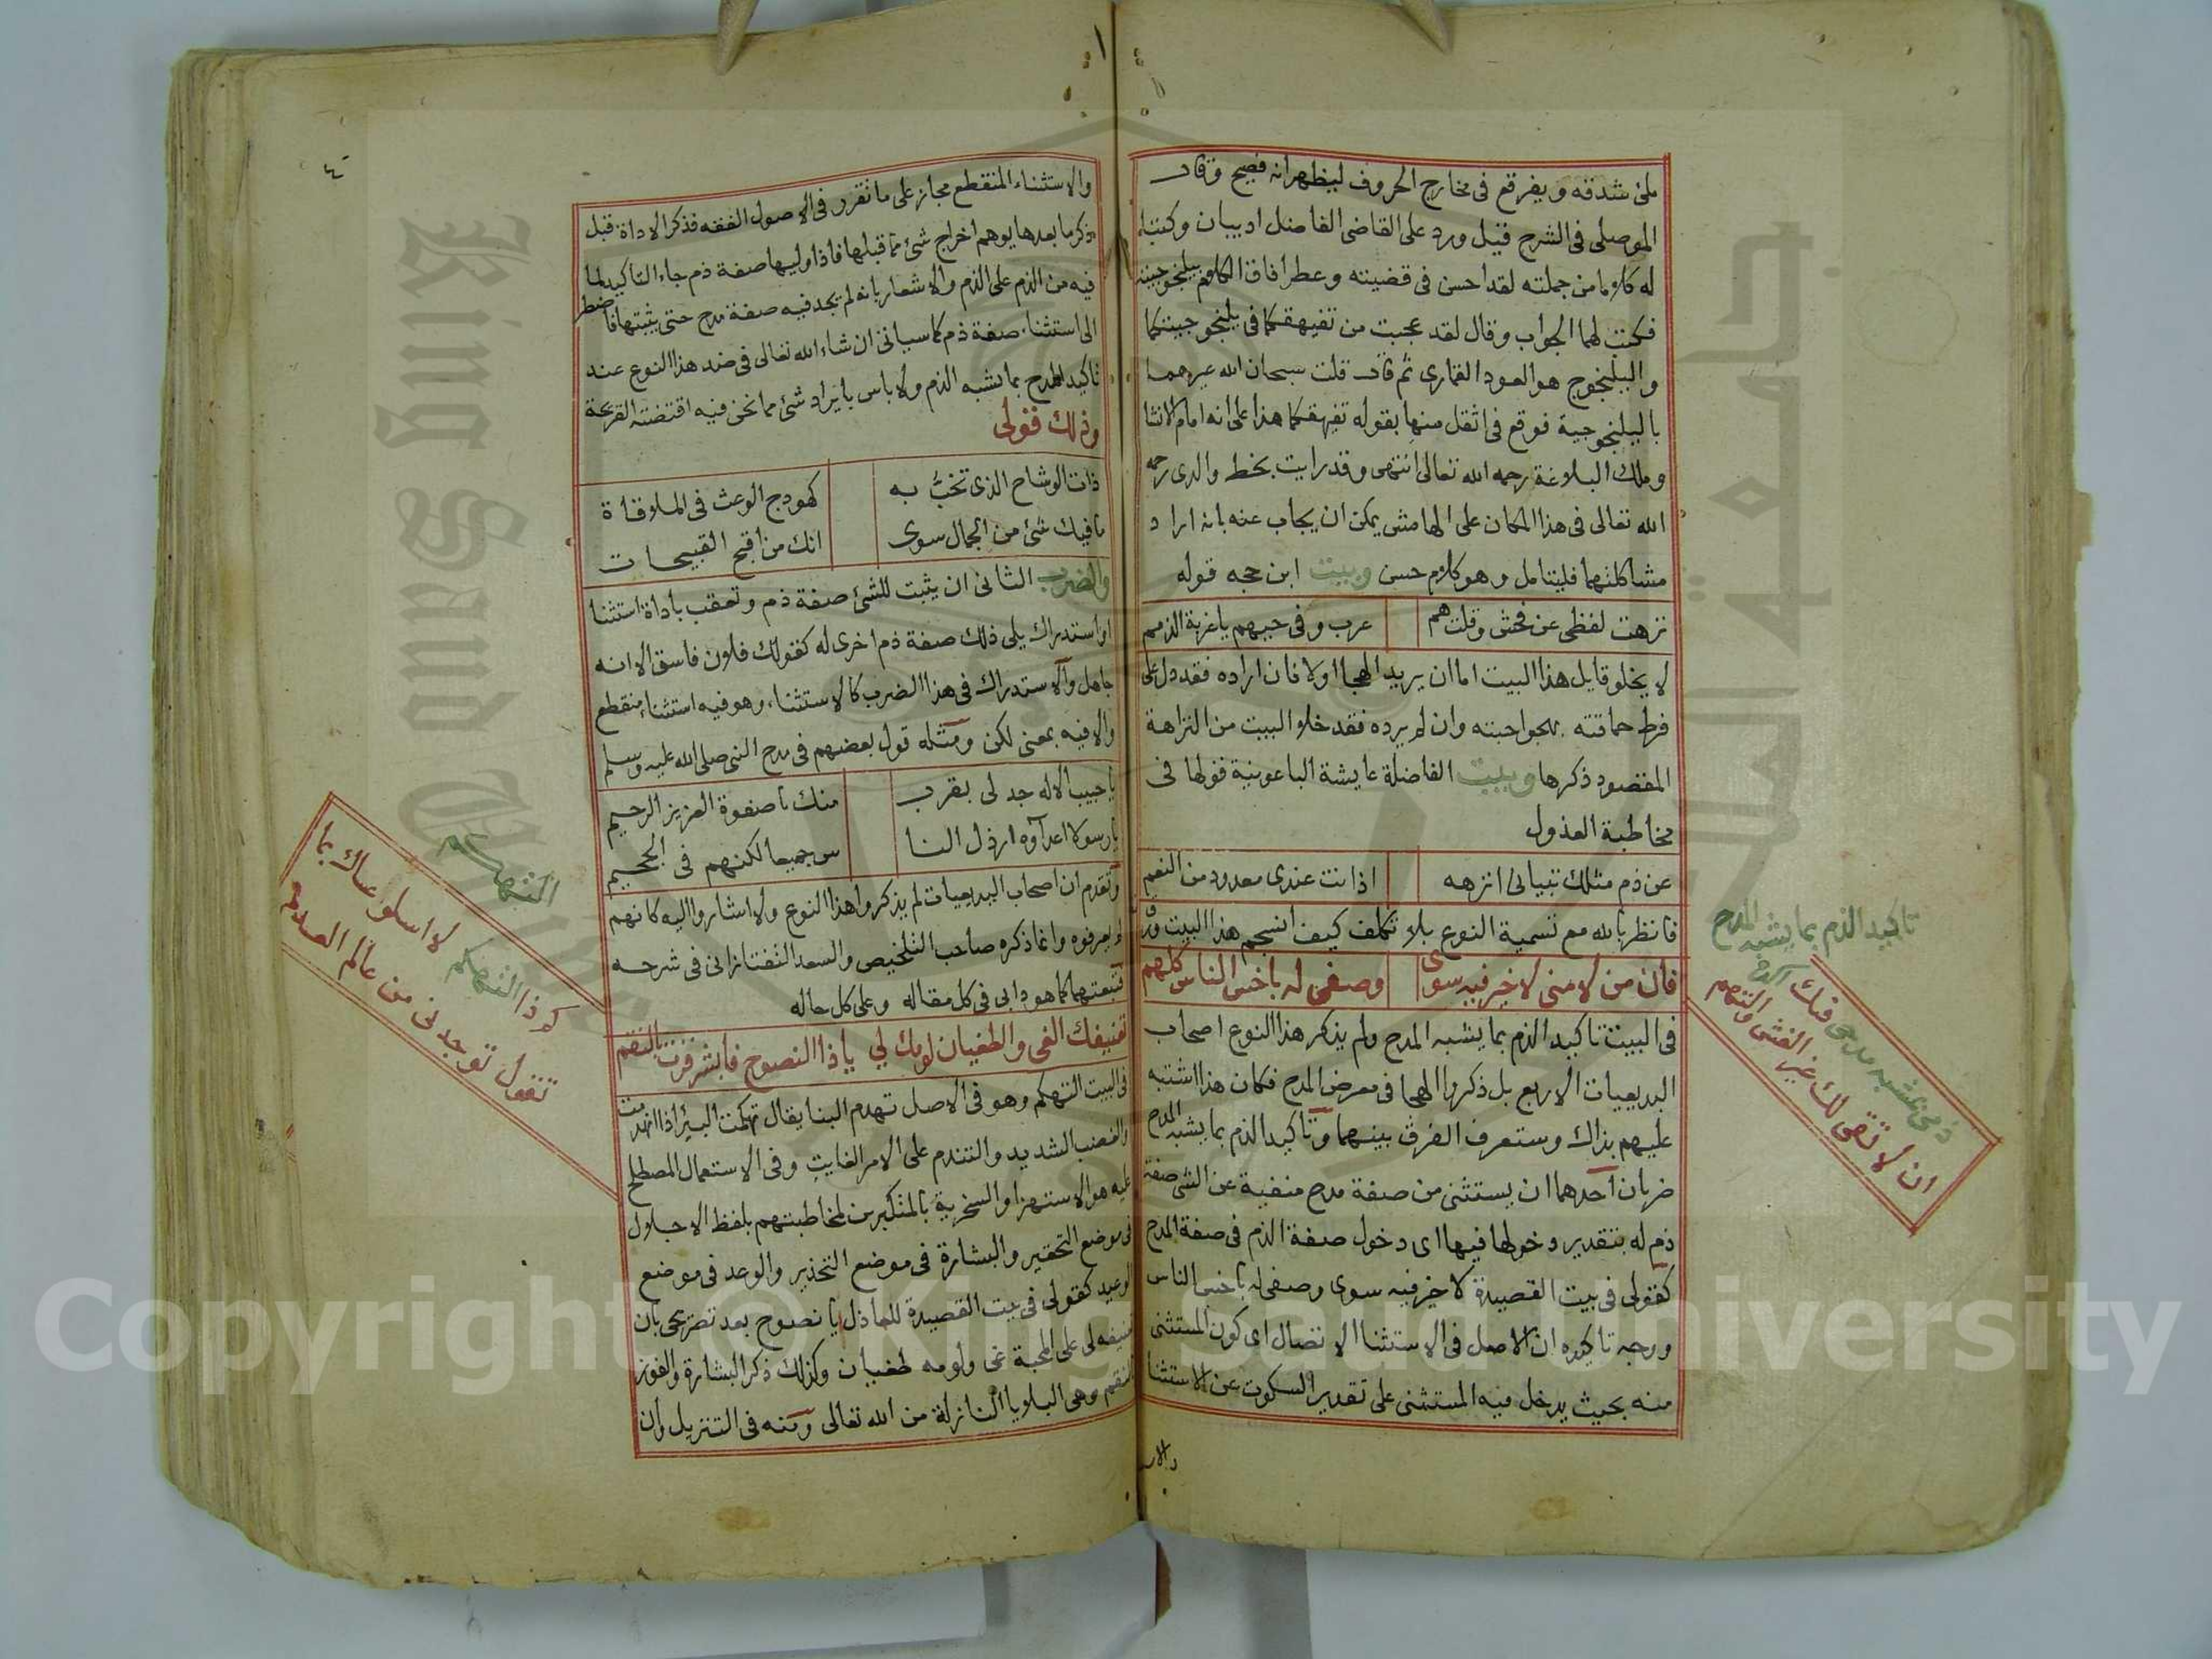 ملئ شدقه ويفرقع فى مخارج الحروف ليظهر انه فصيح وقال
الموصلى فى الشرح قيل ورد على القاضى الفاضل اديبان وكتبا
له كلاما من جملته لقد احسن فى قضيته وعطر افاق الكلام بيلنجوجيته
فكتب لهما الجواب وقال لقد عجبت من تفيهقكما فى يلنجوجيتكما
واليلنجوج هو العود القمارى ثم قال قلت سبحان الله عيرهما
باليلنجوجية فوقع فى اثقل منها بقوله تفيهقكما هذا على انه امام الانشا
وملك البلاغة رحمه الله تعالى انتهى وقد رايت بخط والدى رحمه
الله تعالى فى هذا المكان على الهامش يمكن ان يجاب عنه بانه اراد
مشاكلتهما فليتامل وهو كلام حسن وبيت ابن حجه قوله
نزهت لفظى عن فحش وقلت هم عرب وفى حبهم يا غربة الذمم
لا يخلو قايل هذا البيت اما ان يريد الهجا اولا فان اراده فقد دل على
فرط حماقته بهجو احبته وان لم يرده فقد خلا البيت من النزاهة
المقصود ذكرها وبيت الفاضلة عايشة الباعونية قولها فى
مخاطبة العذول
عن ذم مثلك تبيانى انزهه اذ انت عندى معدود من النعم
فانظر بالله مع تسمية النوع بلا تكلف كيف انسجم هذا البيت
فان من لامنى لا خير فيه سوى وصفى له باخس الناس كلهم
فى البيت تاكيد الذم بما يشبه المدح ولم يذكر هذا النوع اصحاب
البديعيات الاربع بل ذكروا الهجا فى معرض المدح فكان هذا اشتبه
عليهم بذاك وستعرف الفرق بينهما وتاكيد الذم بما يشبه المدح
ضربان احدهما ان يستثنى من صفة مدح منفية عن الشئ صفة
ذم له بتقدير دخولها فيها اى دخول صفة الذم فى صفة المدح
كقولى فى بيت القصيدة لا خير فيه سوى وصفى له باخس الناس
ووجه تاكيده ان الاصل فى الاستثنا الاتصال اى كون المستثنى
منه بحيث يدخل فيه المستثنى على تقدير السكوت عن الاستثنا
تاكيد الذم بما يشبه المدح
ذمى بشبه مدحى فيك
ان لا تقى لك غير الغش والتهم
والاستثناء المنقطع مجاز على ما تقرر فى الاصول الفقه فذكر الاداة قبل
ذكر ما بعدها يوهم اخراج شئ مما قبلها فاذا وليها صفة ذم جاء التاكيد لما
فيه من الذم على الذم والاشعار بانه لم يجد فيه صفة مدح حتى يثبتها فاضطر
الى استثناء صفة ذم كما سياتى ان شاء الله تعالى فى ضد هذا النوع عند
تاكيد المدح بما يشبه الذم ولا باس بايراد شئ مما نحن فيه اقتضته القريحة
وذلك قولى
ذات الوشاح الذى تخب به كهودج الوعث فى الملاوقاة
ما فيك شئ من الجمال سوى انك من اقبح القبيحات
والضرب الثانى ان يثبت للشئ صفة ذم وتعقب باداة استثنا
او استدراك يلى ذلك صفة ذم اخرى له كقولك فلان فاسق الا انه
جاهل والاستدراك فى هذا الضرب كالاستثناء وهو فيه استثناء منقطع
والا فيه بمعنى لكن ومثله قول بعضهم فى مدح النبى صلى الله عليه وسلم
يا حبيب الاله جد لى بقرب منك يا صفوة العزيز الرحيم
يا رسولا اعداؤه ارذل النا س جميعا لكنهم فى الجحيم
وتقدم ان اصحاب البديعيات لم يذكروا هذا النوع ولا اشاروا اليه كانهم
لم يعرفوه وانما ذكره صاحب التلخيص والسعد التفتازانى فى شرحه
فتبعتهما كما هو دابى فى كل مقاله وعلى كل حاله
تعنيفك الغى والطغيان لومك لي يا ذا النصوح فابشر فزت بالنقم
فى البيت التهكم وهو فى الاصل تهدم البنا يقال تهكمت البئر اذا انهدمت
والغضب الشديد والتندم على الامر الفايت وفى الاستعمال المصطلح
عليه هو الاستهزا والسخرية بالمتكبرين لمخاطبتهم بلفظ الاجلال
فى موضع التحقير والبشارة فى موضع التحذير والوعد فى موضع
الوعيد كقولى فى بيت القصيدة للعاذل يا نصوح بعد تصريحى بان
تعنيفه لى على المحبة غى ولومه طغيان وكذلك ذكر البشارة والفوز
بالنقم وهى البلايا النازلة من الله تعالى ومنه فى التنزيل وان
التهكم
كم ذا التهكم لا اسلو عساك بما
تقول توجدنى من عالم العدم
Copyright © King Saud University
King Saud University
جامعة الملك سعود